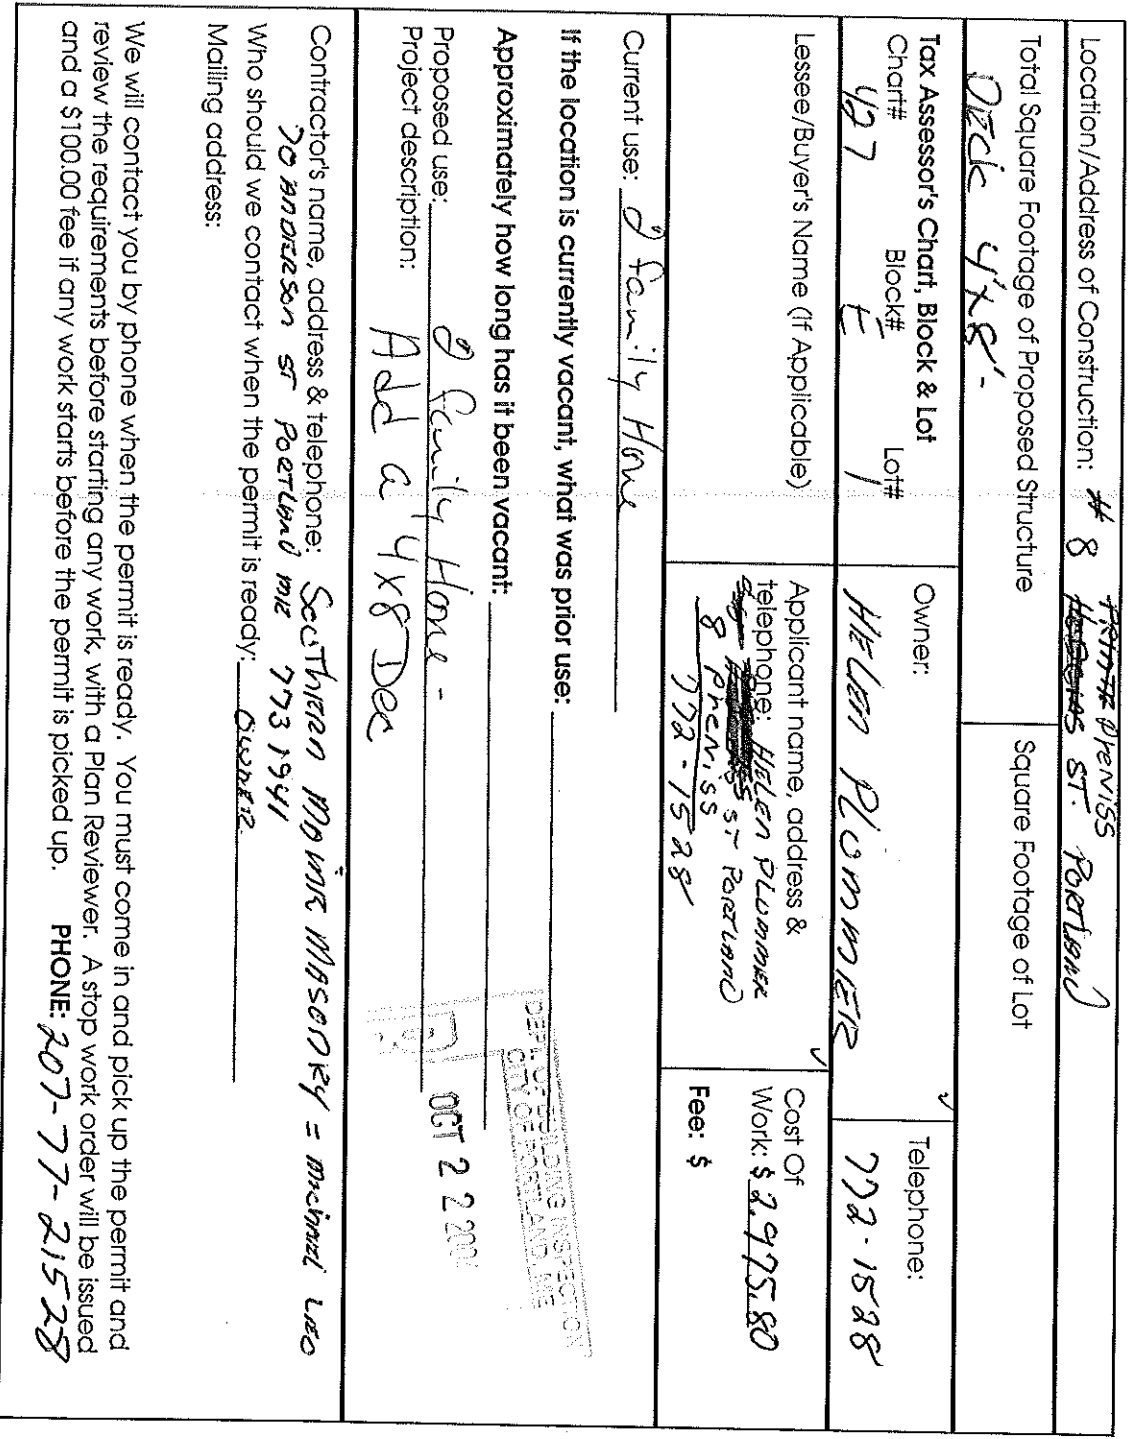 Location/Address of Construction: # 8 Preniss ST. Portland
Total Square Footage of Proposed Structure
Deck 4'x8'-
Square Footage of Lot
Tax Assessor's Chart, Block & Lot
Chart# Block# Lot#
427 E 1
Owner:
HELEN PLUMMER
Telephone:
772-1528
Lessee/Buyer's Name (If Applicable)
Applicant name, address &
telephone: HELEN PLUMMER
ST PORTLAND
8 Preniss
772-1528
Cost Of
Work: $ 2,975.80
Fee: $
Current use: 2 family Home
If the location is currently vacant, what was prior use:
Approximately how long has it been vacant:
Proposed use: 2 family Home -
Project description: Add a 4x8 Dec
DEPT. OF BUILDING INSPECTION
CITY OF PORTLAND, ME
OCT 2 2 200
Contractor's name, address & telephone: SOUTHERN MAINE MASONRY = michael LEO
70 ANDERSON ST PORTLAND ME 773 1941
Who should we contact when the permit is ready: OWNER
Mailing address:
We will contact you by phone when the permit is ready. You must come in and pick up the permit and
review the requirements before starting any work, with a Plan Reviewer. A stop work order will be issued
and a $100.00 fee if any work starts before the permit is picked up. PHONE: 207-77-21528